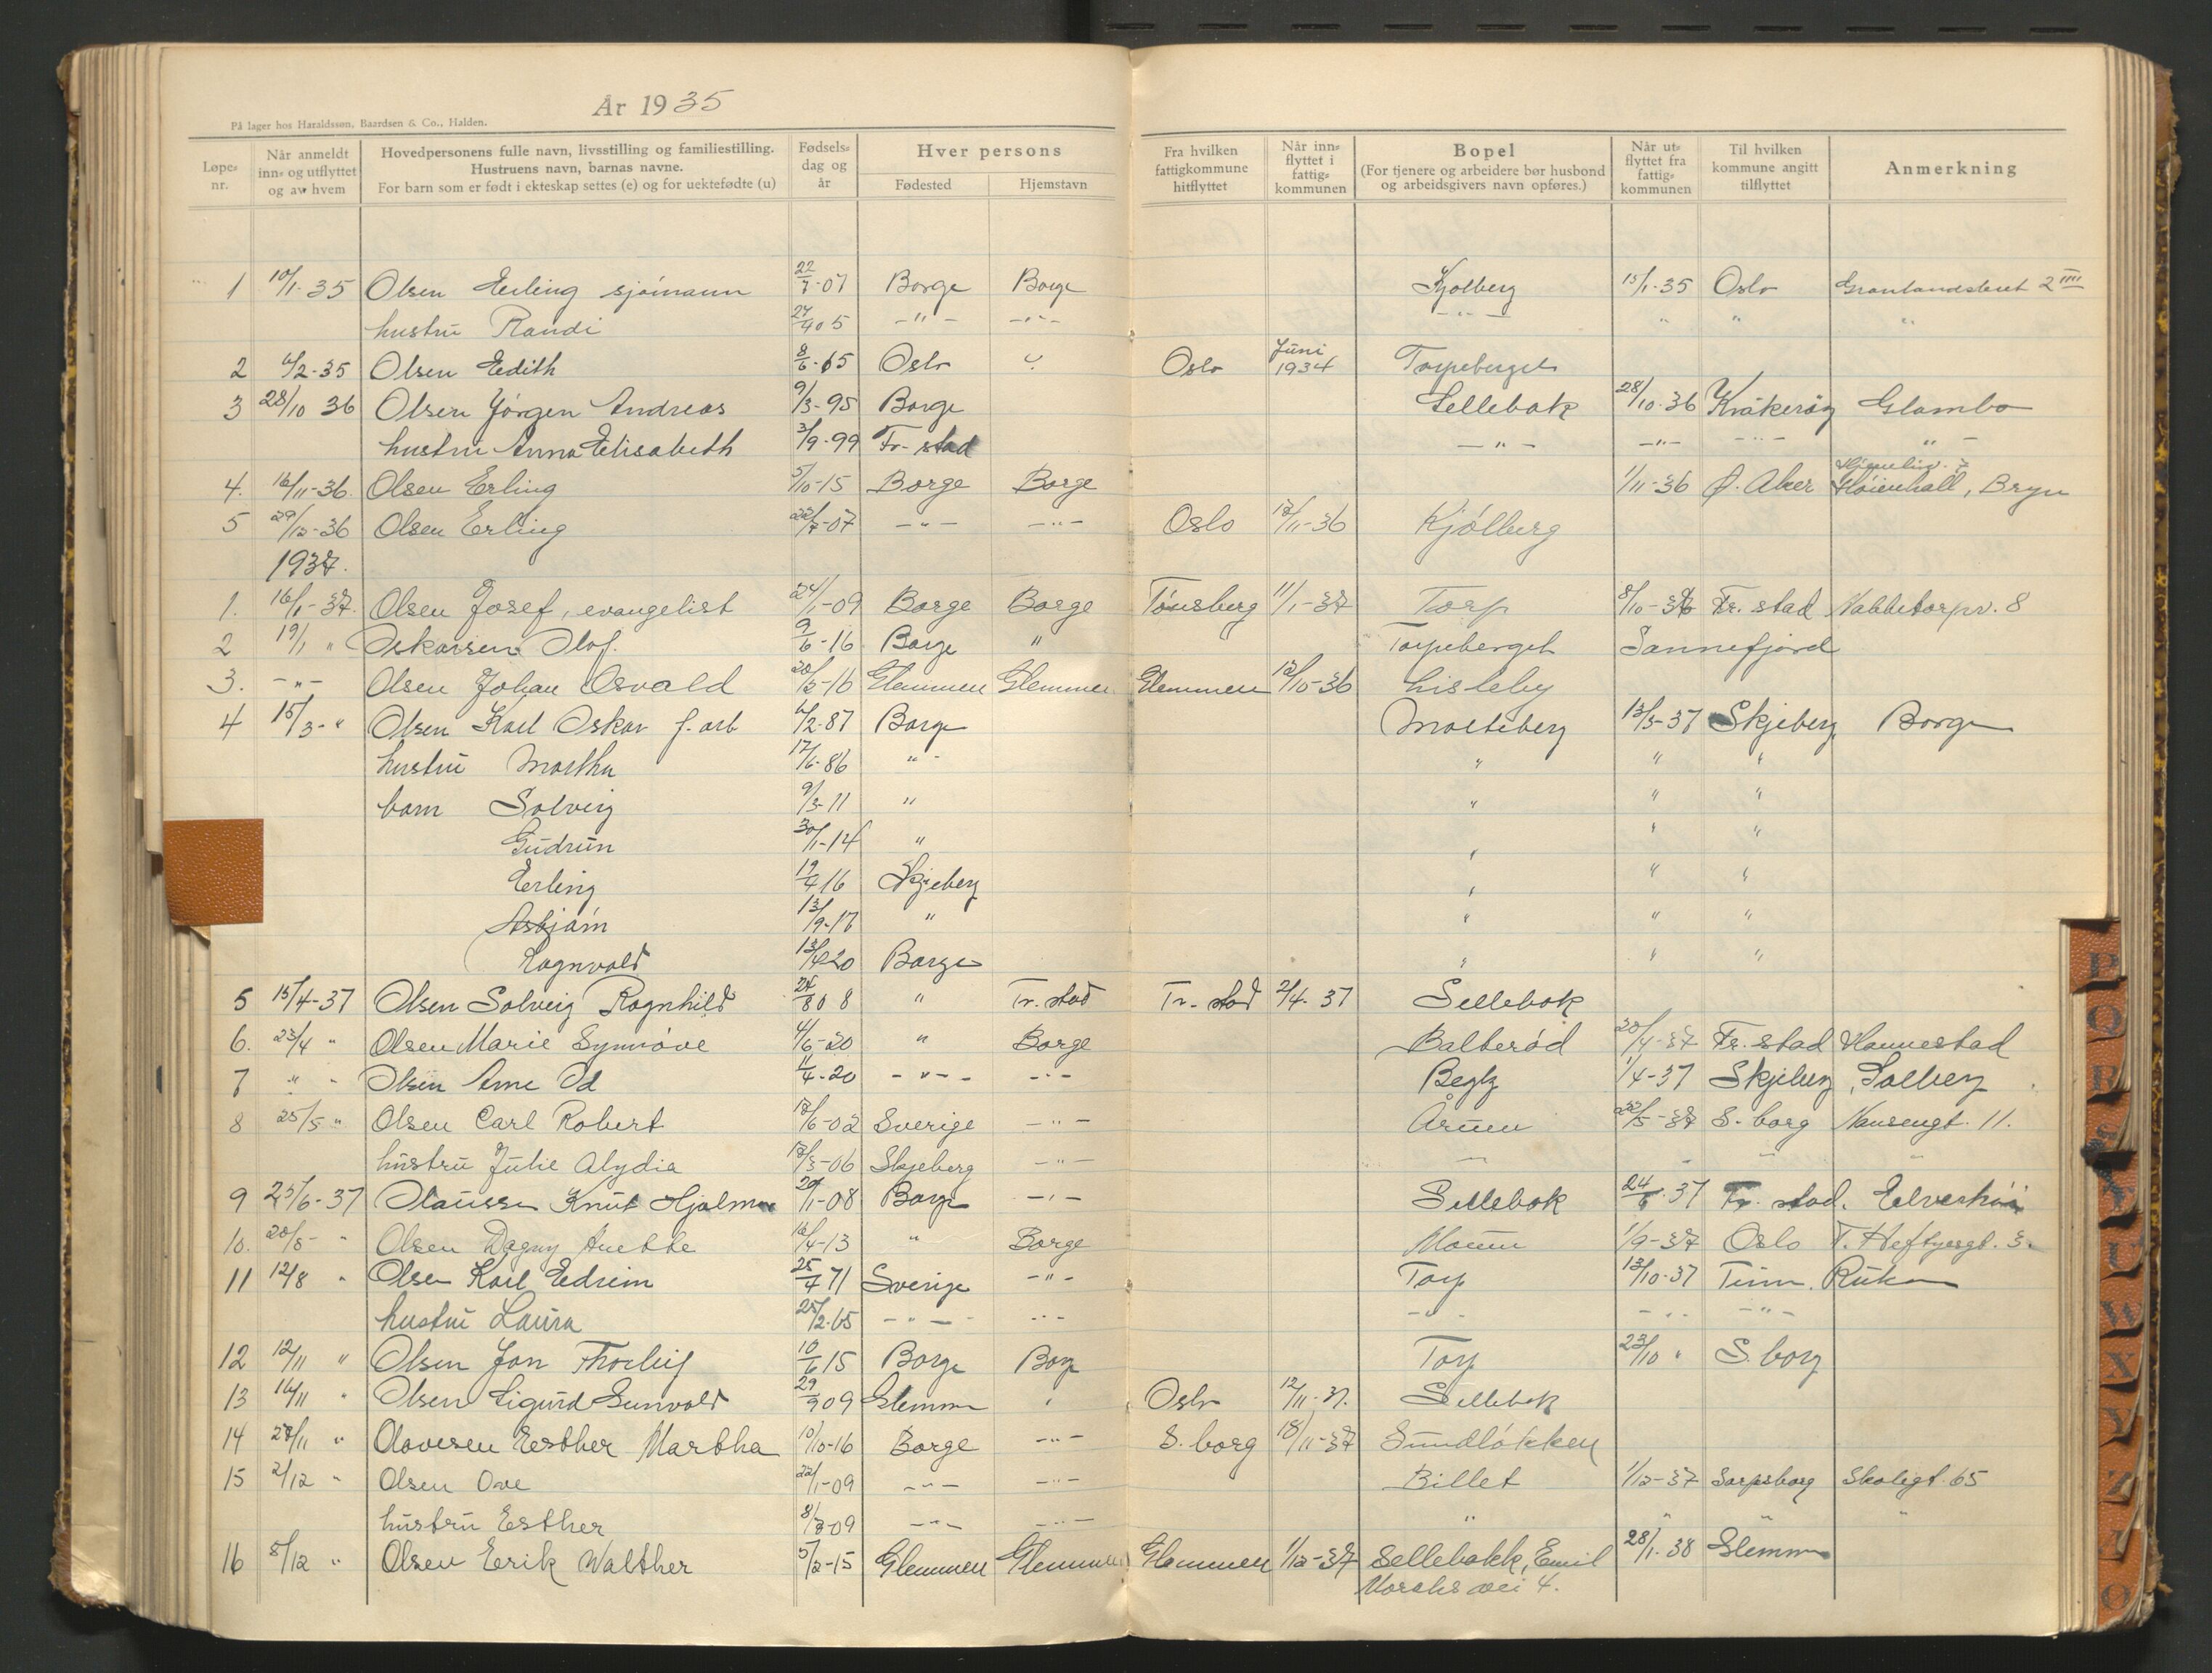 År 1935
På lager hos Haraldssøn, Baardsen & Co., Halden.
Løpe-nr. | Når anmeldt inn- og utflyttet og av hvem | Hovedpersonens fulle navn, livsstilling og familiestilling. Hustruens navn, barnas navne. For barn som er født i ekteskap settes (e) og for uektefødte (u) | Fødsels-dag og år | Hver persons Fødested | Hjemstavn | Fra hvilken fattigkommune hitflyttet | Når inn-flyttet i fattig-kommunen | Bopel (For tjenere og arbeidere bør husbond og arbeidsgivers navn opføres.) | Når ut-flyttet fra fattig-kommunen | Til hvilken kommune angitt tilflyttet | Anmerkning
1 10/1-35 Olsen Erling sjómann 22/7-07 Borge Borge Kjølberg 15/1-35 Oslo 2 III
hustru Randi 27/9 05 -"- -"- -"- " " "
2 6/2-35 Olsen Edith 8/6-65 Oslo Oslo Juni 1934 Torpeberget
3 28/10 36 Olsen Jörgen Andreas 9/3-95 Borge Sellebak 28/10-36 Kråkeröy Glombo
hustru Anna Elisabeth 3/9-99 Fr.stad -"- -"- -"- "-
4. 16/11-36. Olsen Erling 5/10-15 Borge Borge 1/11-36 Ø. Aker Høienhall, Bryn
5 29/12-36 Olsen Erling 22/7-07 -"- -"- Oslo 17/11-36 Kjólberg
1937.
1. 16/1-37. Olsen Josef, evangelist 24/1-09 Borge Borge Tønsberg 11/1-37 Torp 8/10-38 Fr.stad Nabbetorpv. 8
2 19/1 " Oskarsen Olaf. 9/6-16 Borge " Torpeberget Sannefjord
3. -"- Olsen Johan Osvald 20/2-16 Glemmen Glemmen Glemmen 12/10-36 Lisleby
4 15/3-" Olsen Karl Oskar f. arb 6/2-87 Borge Molteberg 13/3-37 Skjeberg Borge
hustru Martha 17/6-86 "- " " "
barn Solveig 9/3-11 " " " "
Gudrun 30/1-14 " " " "
Erling 19/4 16 Skjeberg " " "
Asbjørn 13/9-17 " " " "
Ragnvald 13/4 20 Borge " " "
5 15/4-37 Olsen Solveig Ragnhild 24/8 08 " Fr.stad Fr.stad 2/4-37 Sellebak
6. 23/4 " Olsen Marie Synnöve 4/6-20 " Borge Balteród 20/4-37 Fr.stad Hannestad
7 " " Olsen Arne Od 11/4-20 -"- -"- Begby 1/4-37 Skjeberg, Solberg
8 25/5 " Olsen Carl Robert 17/6-02 Sverige -"- Årum 22/5-37 S.borg Nansengt. 11.
hustru Julie Alydia 17/3-06 Skjeberg -"- - " "
9 25/6-37 Olaussen Knut Hjalmar 20/1-08 Borge -"- Sellebak 24/6-37 Fr.stad.
10. 20/8- " Olsen Dagny Anette 16/4-13 " Borge Moum 1/9-37 Oslo T. Heftyesgt. 3.
11 12/8 " Olsen Karl Edvin 25/4 71 Sverige -"- Torp 13/10-37 Tinn. Rukan
hustru Laura 25/2-65 -"- -"- -"- -"- -"-
12 12/11 " Olsen Jon Thorleif 10/6 15 Borge Borge Torp 23/10 " S.borg
13 16/11 " Olsen Sigurd Gunvald 29/9 09 Glemmen " Oslo 12/11-37. Sellebak
14 27/11 " Olavesen Esther Martha 10/10-16 Borge -"- S.borg 18/11-37 Sundlókken
15 2/12 " Olsen Ove 22/1-09 -"- -"- Billet 1/12-37 Sarpsborg Skolegt. 65
hustru Esther 8/3-09 -"- -"- " " "
16 8/12 " Olsen Erik Walther 5/2-15 Glemmen Glemmen Glemmen 1/12-37 Sellebakk, Emil 28/1-38 Glemmen
Mørchs vei 4.